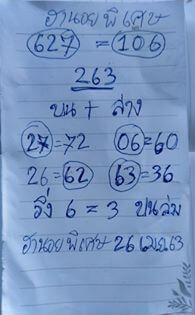 ฮานอยพิเศษ
627 = 106
263
บน + ล่าง
27=72 06=60
26=62 63=36
วิ่ง 6 = 3 บนล่าง
ฮานอยพิเศษ 26 เมย 63